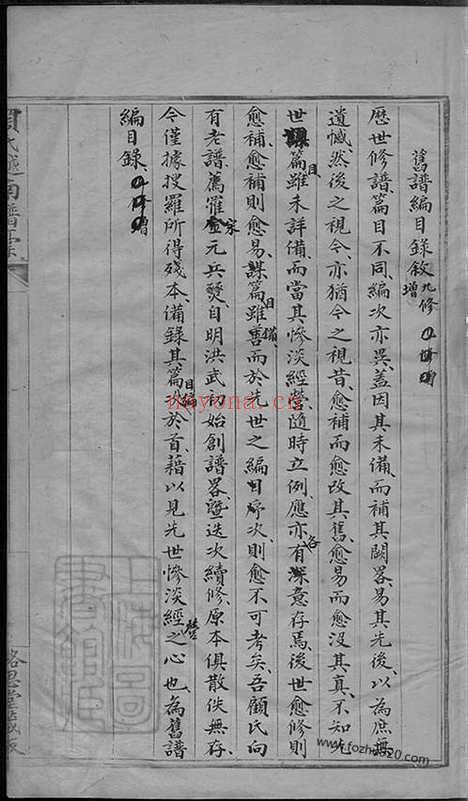 舊譜編目錄敘 九修增
歷世修譜、篇目不同、編次亦異、蓋因其未備、而補其闕畧、易其先後、以為庶無
遺憾、然後之視今、亦猶今之視昔、愈補而愈改其舊、愈易而愈沒其真、不知先
世篇目雖未詳備、而當其慘淡經營、隨時立例、應亦各有深意存焉、後世愈修則
愈補、愈補則愈易、篇目雖備、而於先世之編目序次、則愈不可考矣、吾顧氏向
有老譜、薦罹宋元兵燹、自明洪武初始創譜畧、暨迭次續修、原本俱散佚無存、
今僅據搜羅所得殘本、備錄其篇目編於首、藉以見先世慘淡經營之心也、為舊譜
編目錄、
顧氏
譜
nnyona.cn
www.fozhu920.com